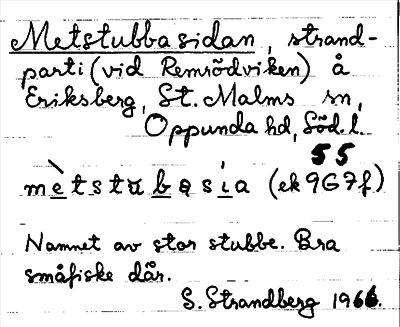 Metstubbasidan, strand-
parti (vid Remrödviken) å
Eriksberg, St. Malms sn,
Oppunda hd, Söd. l.
55
mètstubasia (ek 9G7f)
Namnet av stor stubbe. Bra
småfiske där.
S. Strandberg 1966.